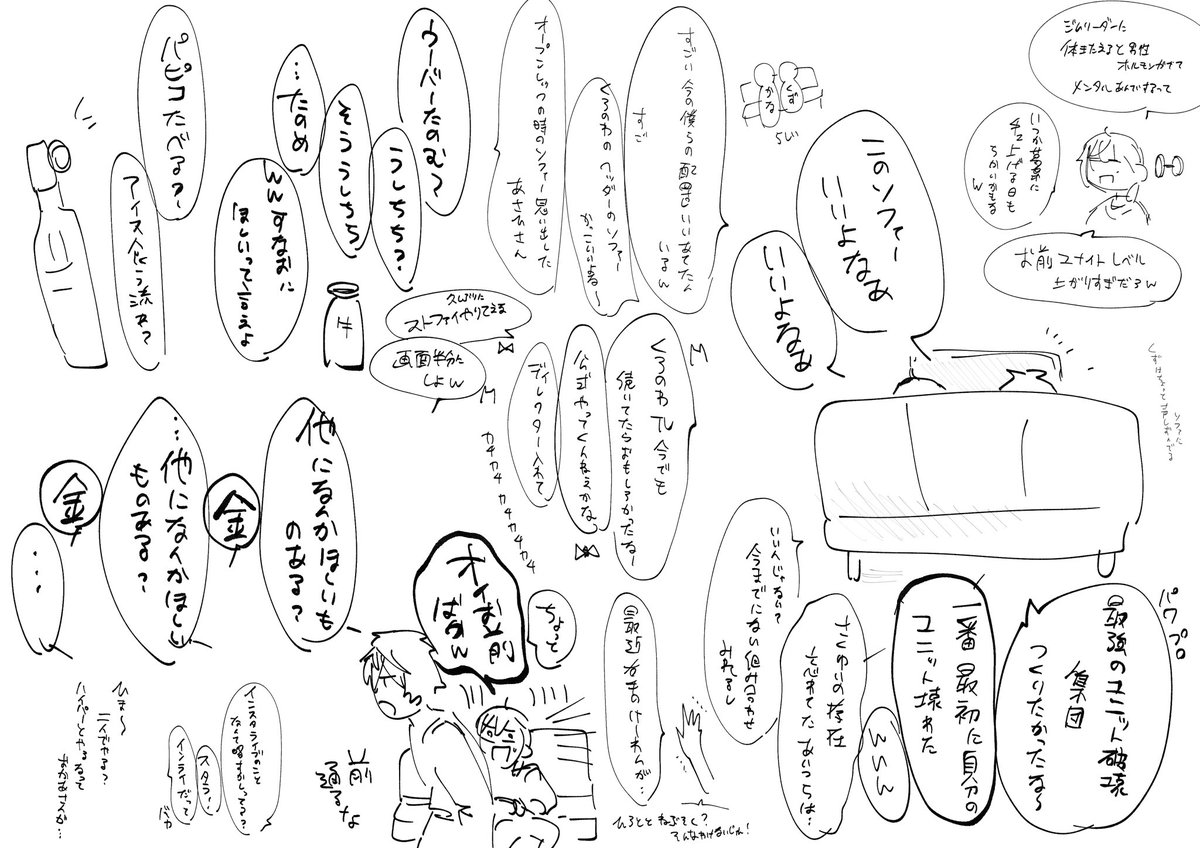 ジムリーダーに
体きたえると男性
ホルモンがでて
メンタルあんてするって
お前ユナイトレベル
上がりすぎだろw
このソファー
いいよなぁ
いいよなぁ
くず
かる
らい
すごい今の僕らの配置いいあてたん
いるん
すご
くろのわのヘッダーのソファー
かっこいいよな〜
オープンレックの時のソファー思い出した
あさひさん
ウーバーたのむ?
うしちち?
そううしちち
…たのめ
wwすなおに
ほしいって言えよ
パピコたべる?
アイスくう流れ?
久しぶりに
ストファイやりてえな
画面半分に
しよw
くろのわTL今でも
続いてたらおもしろかったな〜
公式やってくんねえかな
ディレクター入れて
カチカチカチカチカチ
パワプロ
最強のユニット破壊
集団
つくりたかったな〜
一番最初に自分の
ユニット壊れた
www
さくゆいの存在
忘れてたあいつらは…
いいんじゃない?
今までにない組み合わせ
みれるし
最近右手のけーれんが…
ひろとと ねぶそく?
そんなわけないじゃん!
ちょっと
オイお前
ばかw
前
通るな
他になんかほしいも
のある?
金
…他になんかほしい
ものある?
金
…
インスタライブのこと
なんて略すかしってる?
スタラ!
インライだって
バカ
ひま〜
二人でやる?